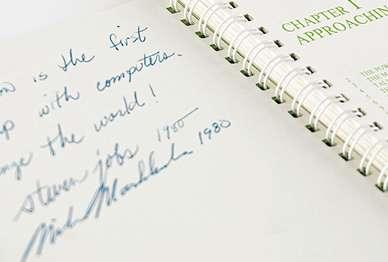 is the first
p with computers.
nge the world!
steven jobs 1980
Mike Markkula 1980
CHAPTER 1
APPROACHIN